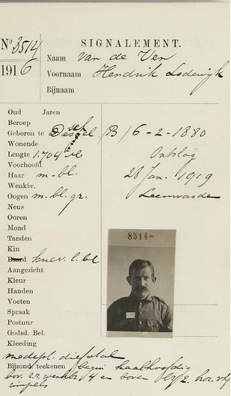 No. 3514 SIGNALEMENT.
1916
Naam van de Ven
Voornaam Hendrik Lodewijk
Bijnaam
Oud Jaren
Beroep
Geboren te (B) 6-2-1880
Wonende
Lengte 1.704 Ontslag
Voorhoofd
Haar m-bl. 28 Jan. 1919
Wenkbr. Leeuwarden
Oogen m. bl. gr.
Neus
Ooren
Mond
Tanden
Kin
Baard knev. l. bl
Aangezicht
Kleur
Handen
Voeten
Spraak
Postuur
Godsd. Bel.
Kleeding
medepl. diefstal
Bijzond teekenen begin kaalhoofdig
bov. en boven 2 hor. vlg
rimpels
8514-